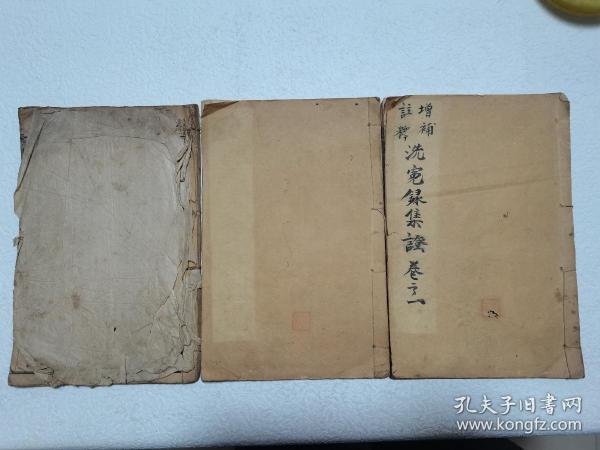 增補
註釋
洗寃録集證 卷之一
孔夫子旧書网
www.kongfz.com